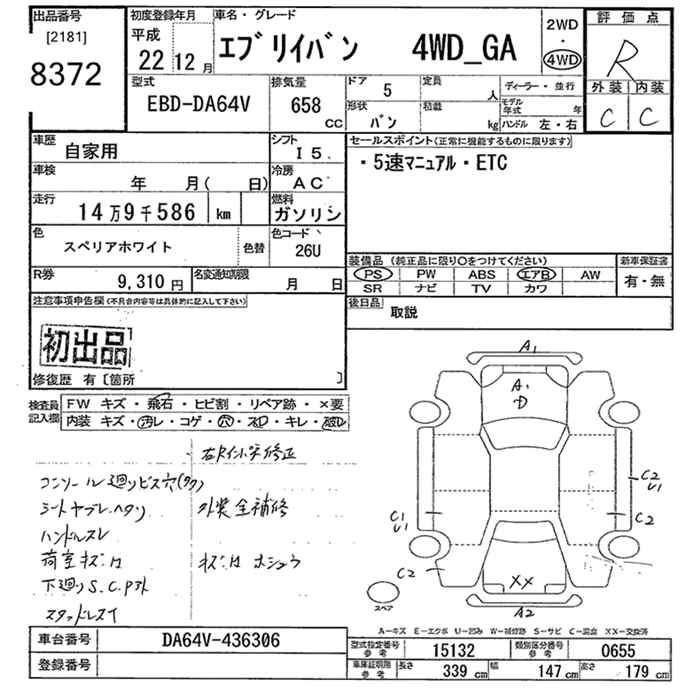 出品番号 初度登録年月 車名・グレード 評価点
[2181] 平成 2WD
8372 22年12月 エブリイバン 4WD_GA ・ 4WD R
型式 排気量 ドア 定員 ディーラー・並行 外装 内装
EBD-DA64V 658 cc 5 人 モデル年式 年 C C
形状 積載
バン kg ハンドル 左・右
車歴 シフト セールスポイント(正常に機能するものに限ります)
自家用 I 5. ・5速マニュアル・ETC
車検 冷房
年 月( 日) AC
走行 燃料
14万9千586 km ガソリン
色 色コード
スペリアホワイト 色替 26U
装備品 (純正品に限り○をつけてください) 新車保証書
R券 名変通知期限 PS PW ABS エアB AW 有・無
9,310円 月 日 SR ナビ TV カワ
注意事項申告欄(不具合内容等は具体的に記入して下さい) 後日品
取説
初出品
修復歴 有〔箇所 〕
検査員記入欄 FW キズ・飛石・ヒビ割・リペア跡・×要
内装 キズ・汚レ・コゲ・穴・スレ・キレ・
A1
A1
D
コンソール廻りビス穴(タク)
シートヤブレ・ヘタリ 外装全補修
ハンドルスレ
荷室キズ凹 キズ凹 ホシュウ
下廻りS.C.Pヌケ
スタッドレスT
C2
U1
C1
U1
C2
C2
XX
スペア A2
A-キズ E-エクボ U-凹み W-補修跡 S-サビ C-腐食 XX-交換済
車台番号 DA64V-436306
登録番号
型式指定番号 参考 15132 類別区分番号 参考 0655
車庫証明用 参考 長さ 339 cm 幅 147 cm 高さ 179 cm